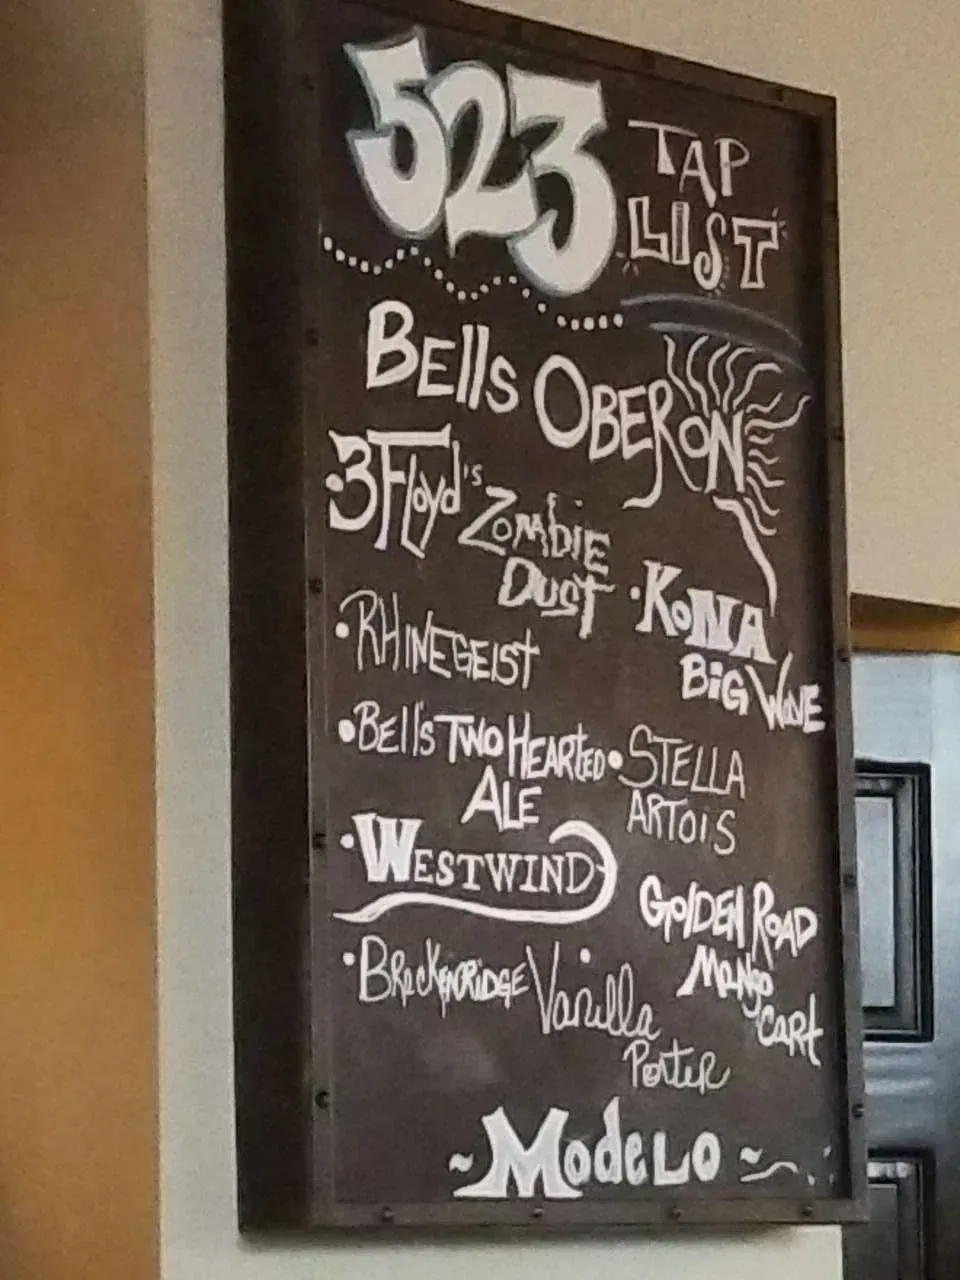 523 TAP
LIST
BELLS OBERON
3 Floyd's ZOMBIE
DUST
KONA
BiG WAVE
RHINEGEIST
BELL'S TWO HEARTED
ALE
STELLA
ARTOIS
WESTWIND
GOLDEN ROAD
MANgo
CART
BRecKENRIDGE Vanilla
Porter
~MODELO~